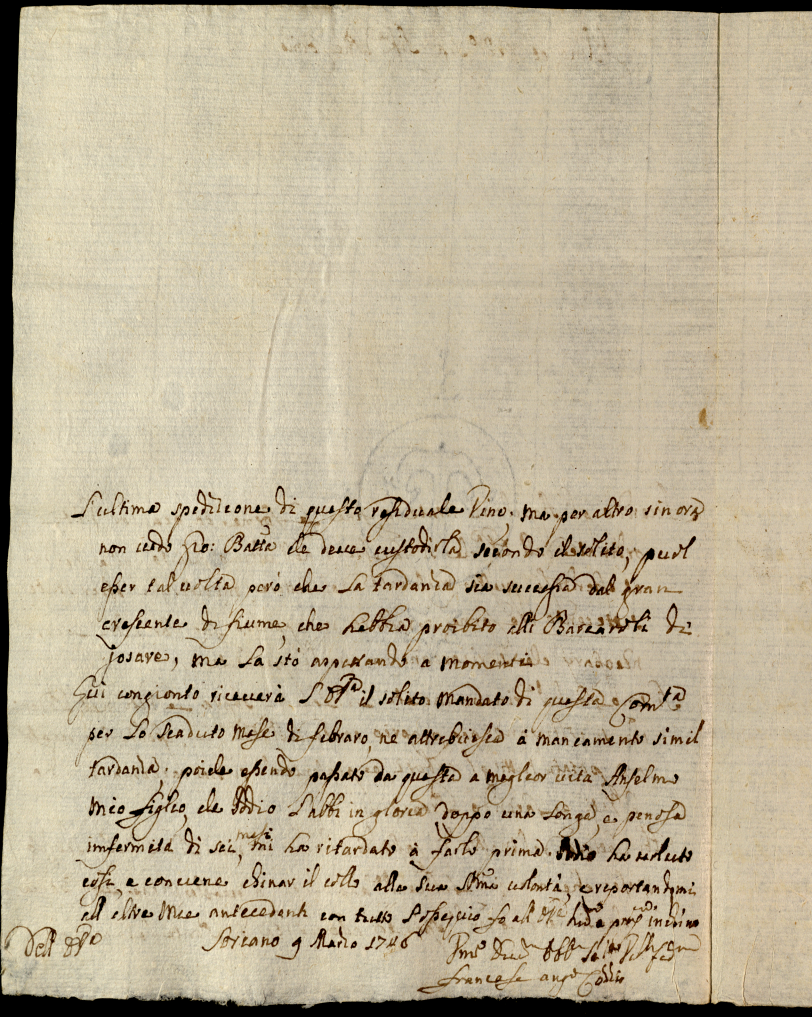 L'ultima spedizione di questo residuale Vino, ma per altro sin ora
non vedo Gio: Batta che deve custodirla secondo il solito, puol
esser tal volta però che la tardanza sia successa dal gran
crescente di fiume, che habbia proibito alli Barcaroli di
, ma la stò aspettando a momenti
Qui congionto riceverà il solito mandato di questa Com.tà
per lo scaduto mese di febraro, ne attrebuisca à mancamento simil
tardanza, poiche essendo passato da questa a meglior vita Anselmo
mio figlio, che Iddio l'abbi in gloria doppo una longa, e penosa
infermità di sei mesi, mi ha ritardato à farlo prima. Iddio ha voluto
così, e conviene chinar il collo alla sua volontà, e reportandomi
all'altre mie antecedenti con tutto l'ossequio fo all'
Dell'
Soriano 9 Marzo 1746
Francesc' Ang.o